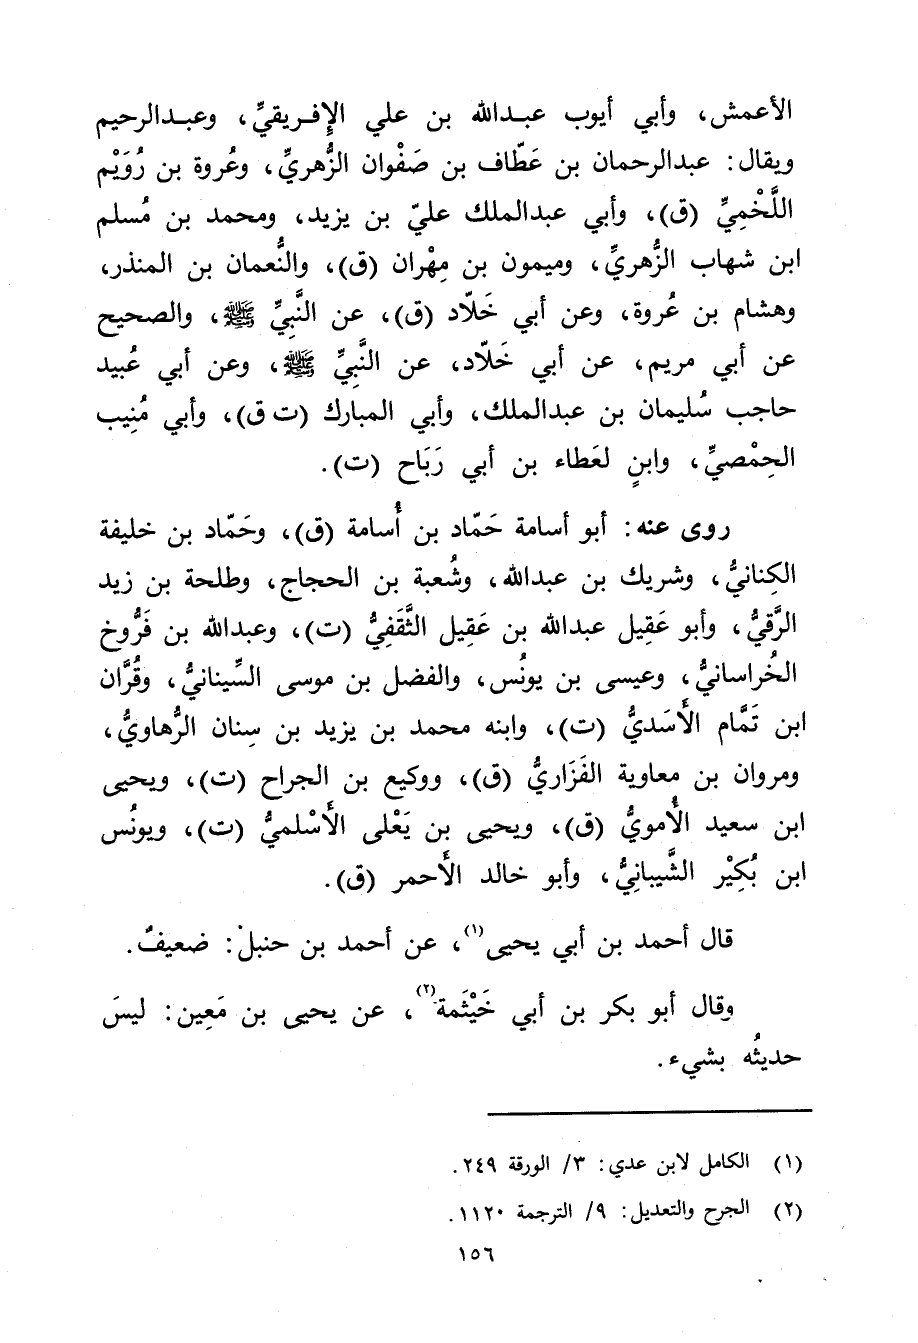 الأعمش، وأبي أيوب عبدالله بن علي الإفريقيِّ، وعبدالرحيم
ويقال: عبدالرحمان بن عَطّاف بن صَفْوان الزُّهريِّ، وعُروة بن رُوَيْم
اللَّخْمِيِّ (ق)، وأبي عبدالملك عليّ بن يزيد، ومحمد بن مُسلم
ابن شهاب الزُّهريِّ، وميمون بن مِهْران (ق)، والنُّعمان بن المنذر،
وهشام بن عُروة، وعن أبي خَلّاد (ق)، عن النَّبِيِّ ﷺ، والصحيح
عن أبي مريم، عن أبي خَلّاد، عن النَّبِيِّ ﷺ، وعن أبي عُبيد
حاجب سُليمان بن عبدالملك، وأبي المبارك (ت ق)، وأبي مُنِيب
الحِمْصيِّ، وابنٍ لعَطاء بن أبي رَبَاح (ت).
روى عنه: أبو أسامة حَمّاد بن أُسامة (ق)، وحَمّاد بن خليفة
الكِنانيُّ، وشريك بن عبدالله، وشُعبة بن الحجاج، وطلحة بن زيد
الرَّقيُّ، وأبو عَقِيل عبدالله بن عَقِيل الثَّقَفِيُّ (ت)، وعبدالله بن فَرُّوخ
الخُراسانيُّ، وعيسى بن يونُس، والفضل بن موسى السِّينانيُّ، وقُرَّان
ابن تَمَّام الأَسَديُّ (ت)، وابنه محمد بن يزيد بن سِنان الرُّهاويُّ،
ومروان بن معاوية الفَزَاريُّ (ق)، ووكيع بن الجراح (ت)، ويحيى
ابن سعيد الأُمويُّ (ق)، ويحيى بن يَعْلى الأَسْلميُّ (ت)، ويونُس
ابن بُكِيْر الشَّيبانِيُّ، وأبو خالد الأَحمر (ق).
قال أحمد بن أبي يحيى(١)، عن أحمد بن حنبل: ضعيفٌ.
وقال أبو بكر بن أبي خَيْثَمة(٢)، عن يحيى بن مَعِين: ليسَ
حديثُه بشيء.
(١) الكامل لابن عدي: ٣/ الورقة ٢٤٩.
(٢) الجرح والتعديل: ٩/ الترجمة ١١٢٠.
١٥٦